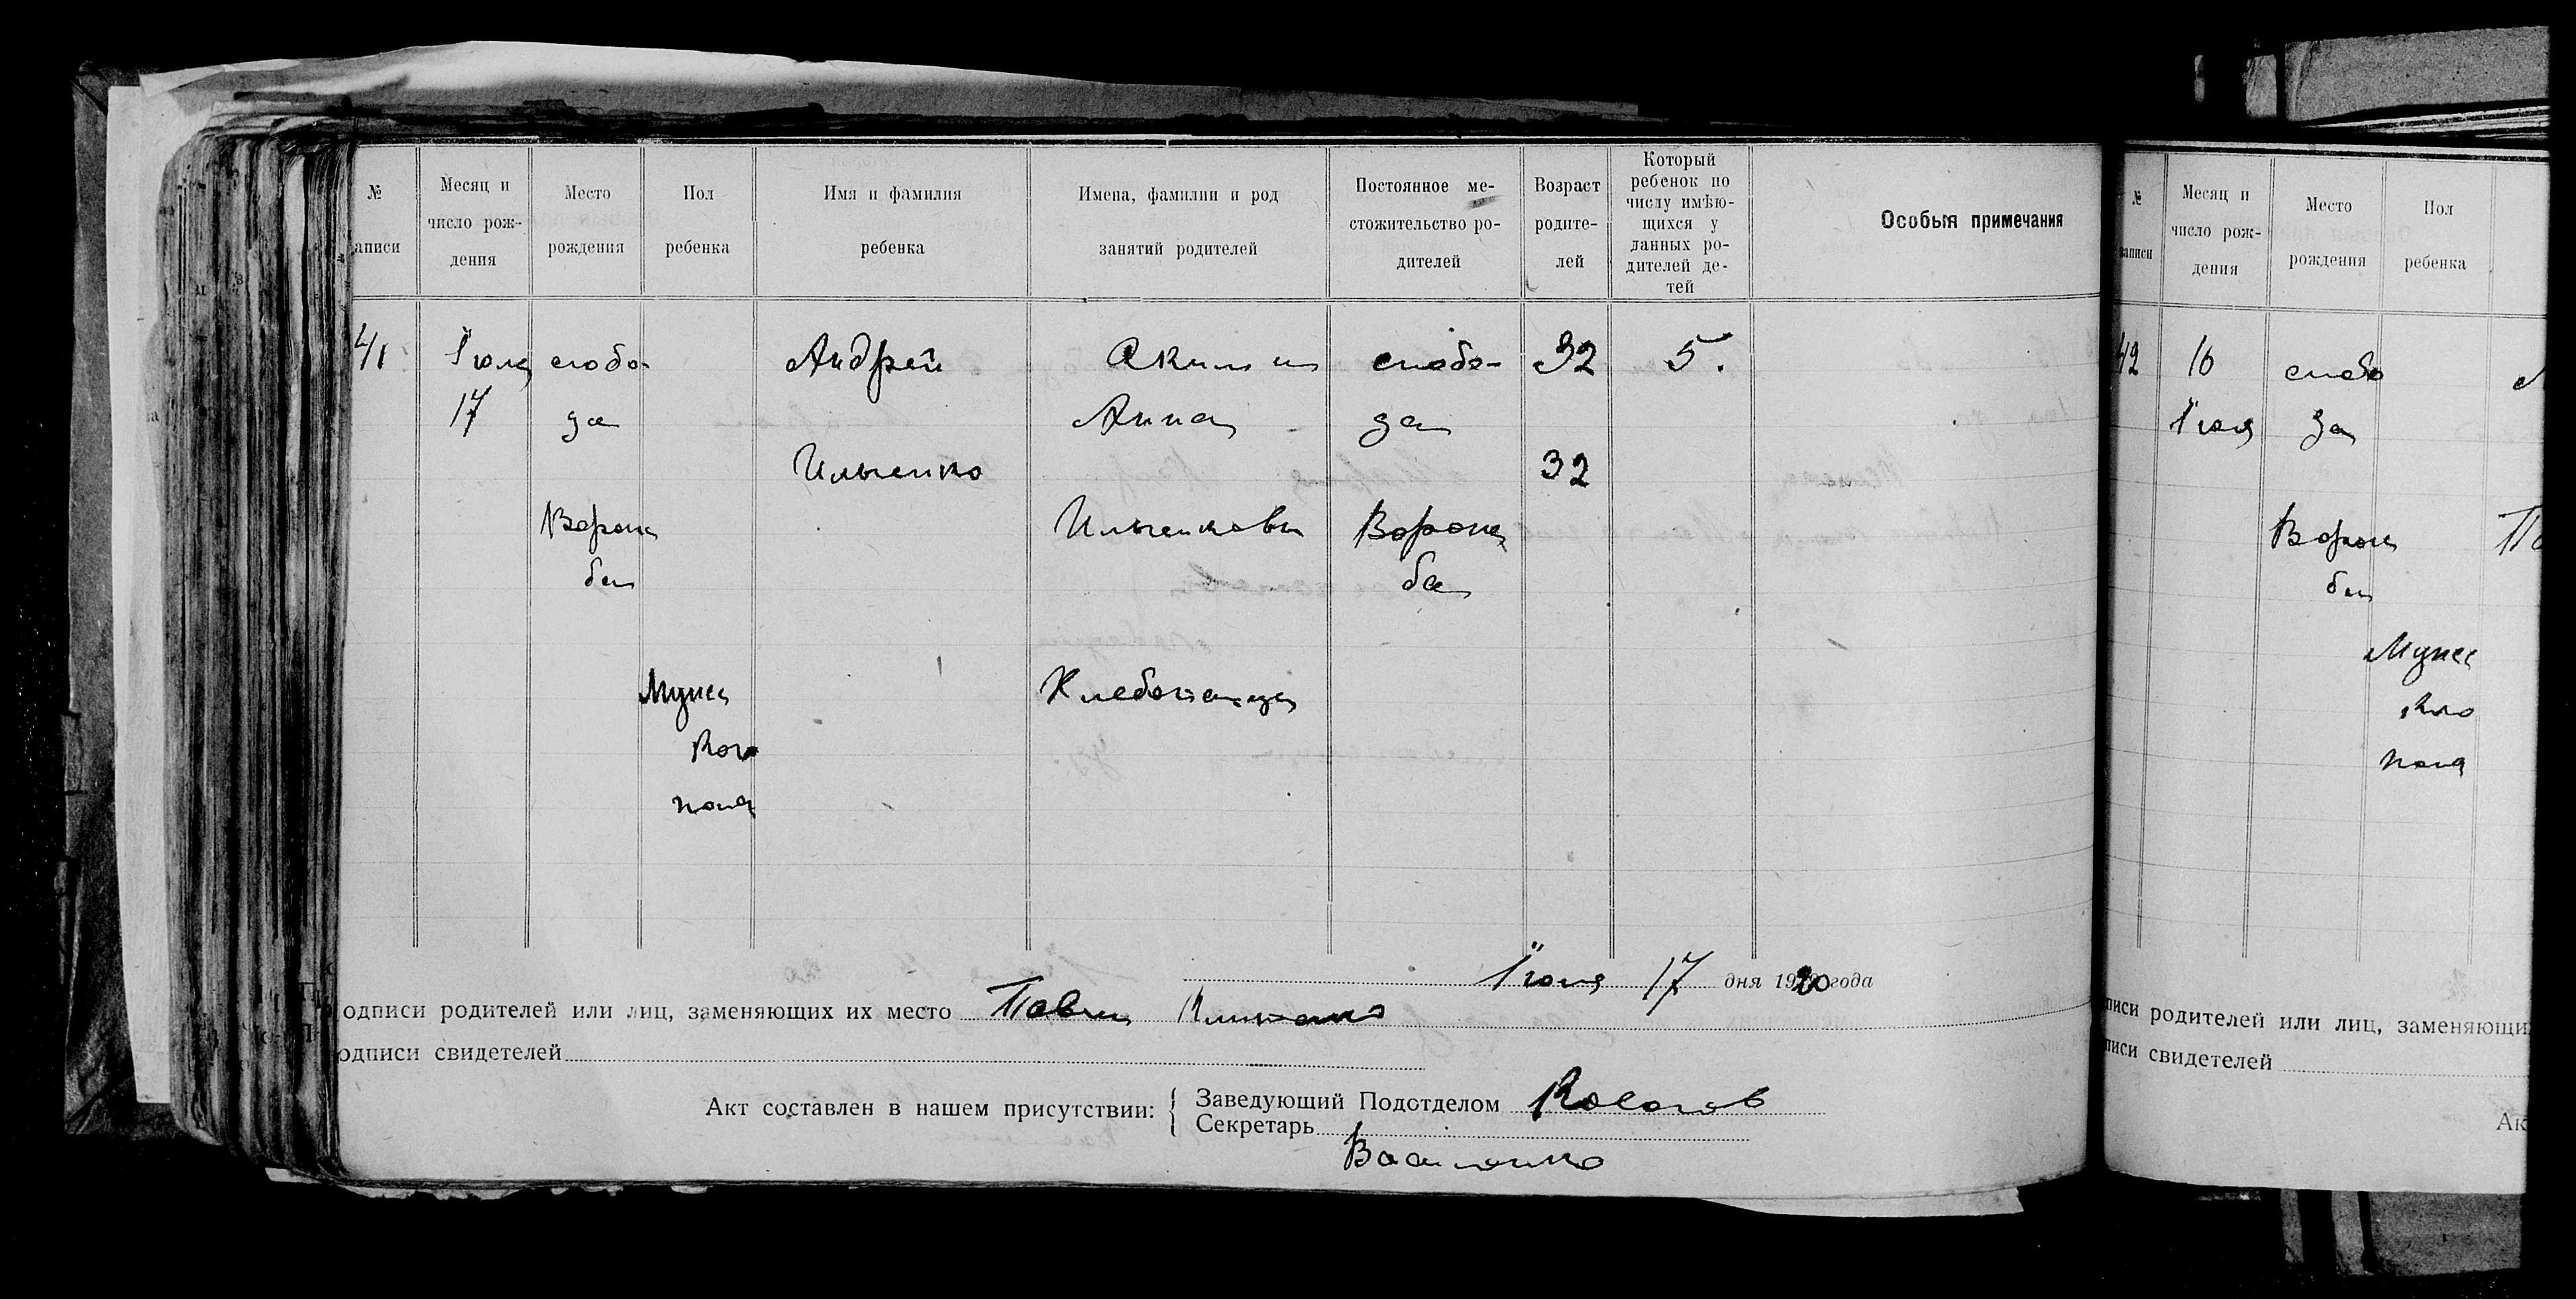 № аписи
Месяц и число рож- дения
Место рождения
Пол ребенка
Имя и фамилия ребенка
Имена, фамилии и род занятий родителей
Постоянное ме- стожительство ро- дителей
Возраст родите- лей
Который ребенок по числу имѣю- щихся у данных ро- дителей де- тей
Особыя примечания
41 Іюля слобо- Андрей Аким и слобо- 32 5.
17 да Анна да
Ильченко 32
Ворон Ильченковы Ворон
ба ба
Мужс Хлебопашцы
кого
пола
Іюля 17 дня 1920 года
одписи родителей или лиц, заменяющих их место Павел
одписи свидетелей
Акт составлен в нашем присутствии:
Заведующий Подотделом
Секретарь
Василенко
№ аписи
Месяц и число рож- дения
Место рождения
Пол ребенка
42 16 слобо
Іюля да
Ворон
ба
Мужс
кого
пола
писи родителей или лиц, заменяющи
писи свидетелей
Ак